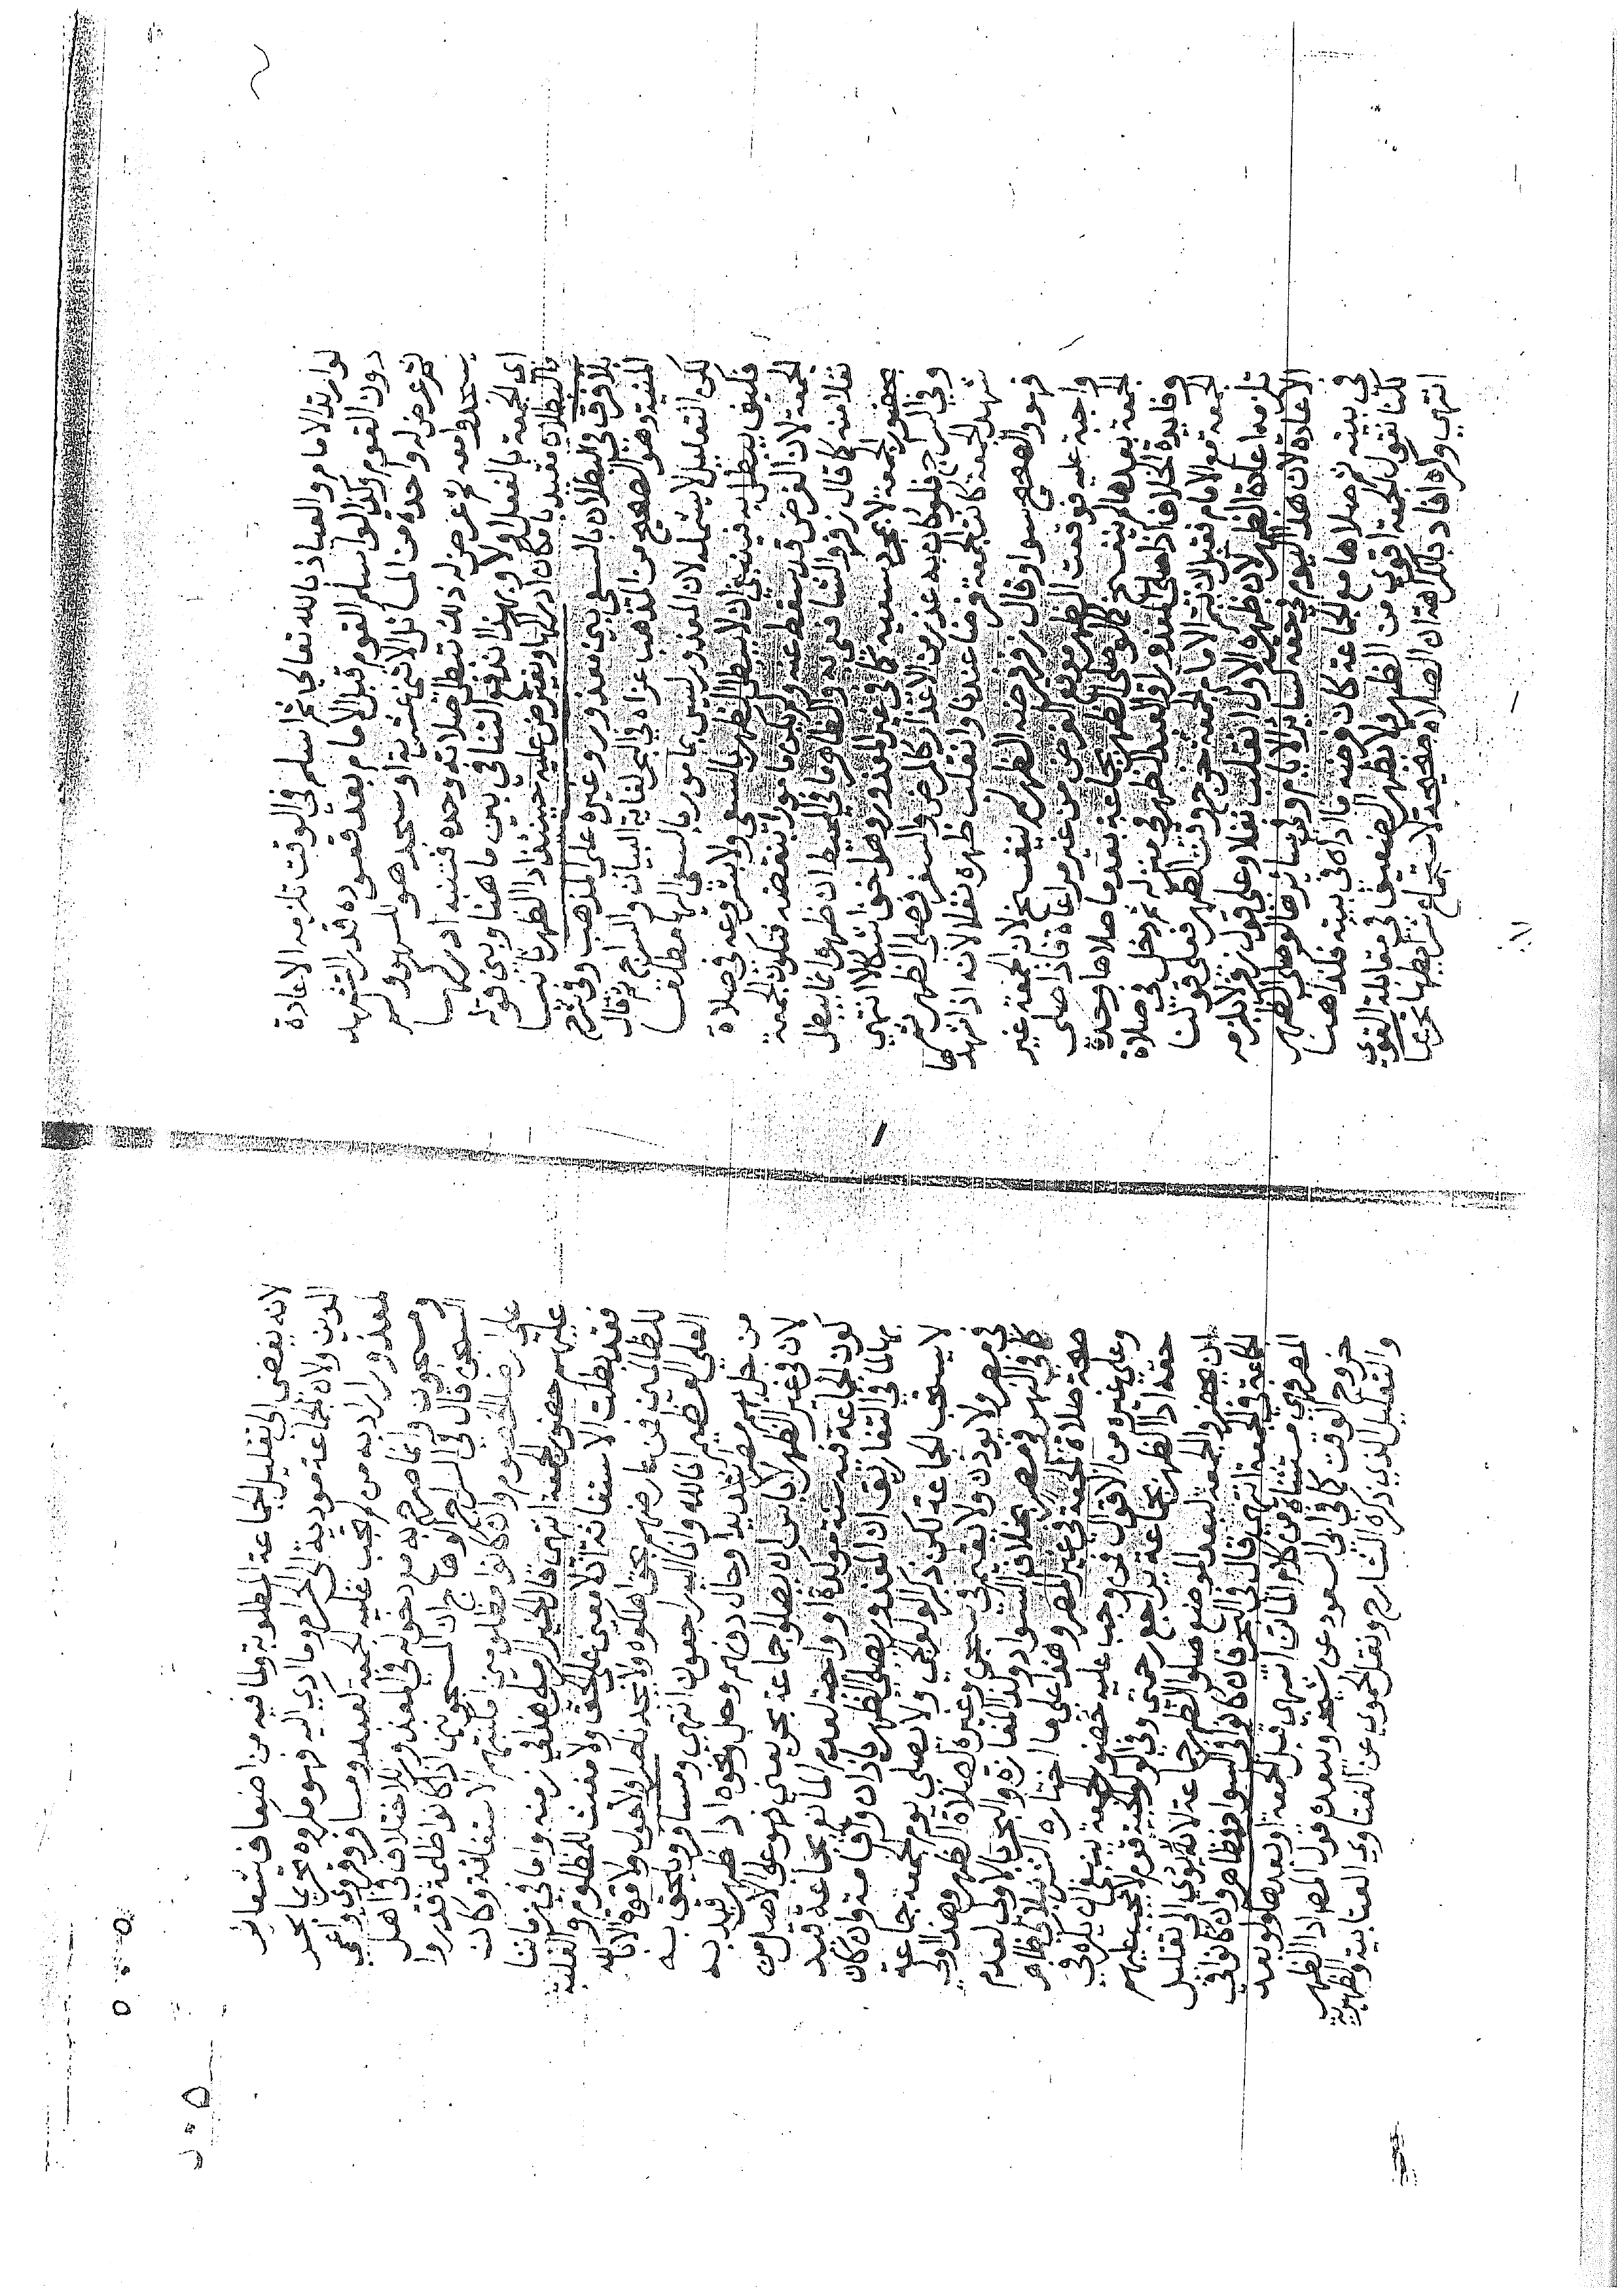 لو ارتد الامام والعياذ بالله تعالى ثم اسلم في الوقت تلزمه الاعادة
دون القوم وكذا لو اسلم القوم قبل الامام بعد قعوده قدر التشهد
ثم عرض له واحدة من المسائل الاثنى عشرية او سجد هو للسهو ولم
يسجدوا معه ثم عرض له ذلك تبطل صلاته وحده فتنبه ادركها
اى الجمعة بالفعل اولا وبهذا اندفع التنافي بين ما هنا وبين قوله
بالبطلان مقيد بامكان ادراكها ويفترض عليه حينئذ اداء الظهر ثانيا
بلا فرق في البطلان بالسعي بين معذور وغيره على المذهب وفي شرح
المنية وهو الصحيح من المذهب عزاه في البحر لغاية البيان والسراج ثم قال
لكن التعليل لا يشمله لان المعذور ليس بمامور بالسعي اليها مطلقا
فكيف يبطل به فينبغي ان لا يبطل الظهر بالسعي ولا بشروعه في صلاة
الجمعة لان الفرض قد سقط عنه ولم يكن مامورا بنقضه فتكون الجمعة
نفلا منه كما قال زفر والشافعي به والظاهر ما في المحيط ان ظهره انما يبطل
بحضور الجمعة لا بمجرد سعيه كما في غير المعذور وهو اخف اشكالا انتهى
وفي السراج فلو كان به عذر من الاعذار كالمرض والسفر فصلى الظهر ثم
شهد الجمعة كانت الجمعة فرضا عندنا وانقلبت ظهره نفلا لانه اذا شهدها
فهو والصحيح سوا وقال زفر فرضه الظهر لم ينفسخ لان الجمعة غير
واجبة عليه فوقعت الظهر موقع الفرض من غير مراعاة فاذا صلى
الجمعة بعدها لم ينفسخ كما لو صلى الظهر بجماعة بعد ما صلاها وحده
وفايدة الخلاف اذا صلى المعذور او العبد الظهر في منزله ثم دخل في صلاة
الجمعة مع الامام فقبل ان يتم الامام الجمعة خرج وقت الظهر فعلى قولنا
تلزمه اعادة الظهر لان ظهره الاول انقلبت نفلا وعلى قول زفر لا يلزمه
الاعادة لان هذا اليوم في حقه كسائر الايام وفي سائرها لو صلى الظهر
في بيته ثم صلاها مع الجماعة كان فرضه ما اداه في بيته فكذا هنا
لكنا نقول الجمعة اقوى من الظهر فلا يظهر الضعيف في مقابلة القوى
انتهى وكره افاد بالكراهة ان الصلاة صحيحة لاستجماع شرايطها تحريما
لانه يفضي الى تقليل الجماعة المطلوبة ولما فيه من اضعاف شعائر
الدين ولان الجماعة مودية الى الحرام وما ادى اليه فهو مكروه تحريما بحر
لمعذور اراد به من لم تجب عليه الجمعة كعبد ومسافر وقروي واعمى
ومسجون وانما صرح به مع دخوله في المعذور للاختلاف في اهل
السجن قال في السراج الوهاج ان المسجونين اذا كانوا ظلمة قدروا
على ارضا الخصوم وان كانوا مظلومين امكنهم الاستغاثة وكان
عليهم حضور الجمعة انتهى قال الخير الرملي هذا في زمنه واما في زماننا
فقد بطلت الاستغاثة اذ لا معين على الحق ولا مغيث للمظلوم والغلبة
للظالمين فمن عارضهم بحق اهلكوه ولا تجد ناصرا ولا حول ولا قوة الا بالله
العلي العظيم انا لله وانا اليه راجعون انتهى ومسافر ويلحق به
من حل بهم مطر شديد اوحال دونهم وحل ونحوه ادا ظهر قيد به
لان في غير الظهر لا باس ان يصلوا جماعة بحر يعني فهو على الاصل من
كون الجماعة فيه سنة موكدة او واجبة لعدم المانع بجماعة قيد
بها لما في التفاريق ان المعذور يصلى الظهر باذان واقامة وان كان
لا يستحب الجماعة لكن ذكر الولوالجي ولا يصلى يوم الجمعة جماعة
في مصر ولا يوذن ولا يقيم في سجن وغيره لصلاة الظهر وهذا اولى
كما في النهر في مصر بخلاف السواد وكذا المفازة والبحر بالاولى لعدم
صحة صلاة الجمعة في غير المصر وهذا على ما اختاره الشرنبلالي ظاهر
وعلى غيره من الاقوال فمن وجب عليه حضور الجمعة ينبغي ان يكره في
حقه اداء الظهر بجماعة تراجع رحمتي وفي الولوالجية قوم لا يجب عليهم
ان يحضروا الجمعة لبعد الموضع صلوا الظهر جماعة لانه لا يؤدي الى تقليل
الجماعة في الجمعة انتهى قال في البحر فان كانوا في السواد فظاهر وان كانوا في
المصر فهي مستثناة من كلام الماتن انتهى قبل الجمعة او بعدها ولو بعد
خروج الوقت كما في ابي السعود عن شيخه وبعدت قول المص اداء الظهر
والتعليل الذي ذكره الشارح ونقل الحموي عن الفتاوي العتابية والظهيرية